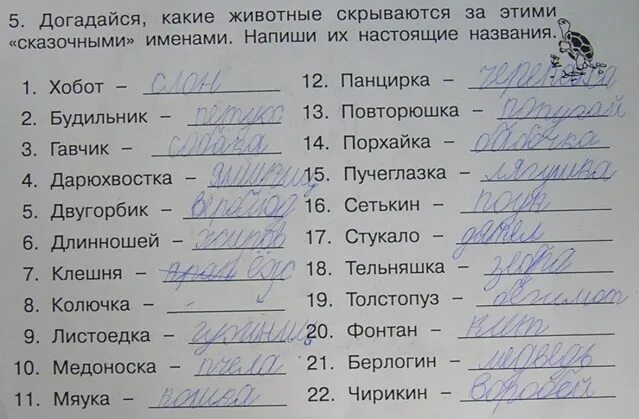 5. Догадайся, какие животные скрываются за этими
«сказочными» именами. Напиши их настоящие названия.
1. Хобот – слон
2. Будильник – петух
3. Гавчик – собака
4. Дарюхвостка –
5. Двугорбик – верблюд
6. Длинношей –
7. Клешня –
8. Колючка –
9. Листоедка –
10. Медоноска – пчела
11. Мяука – кошка
12. Панцирка – черепаха
13. Повторюшка – попугай
14. Порхайка – бабочка
15. Пучеглазка – лягушка
16. Сетькин – поук
17. Стукало – дятел
18. Тельняшка – зебра
19. Толстопуз – бегимот
20. Фонтан – кит
21. Берлогин – медведь
22. Чирикин – воробей